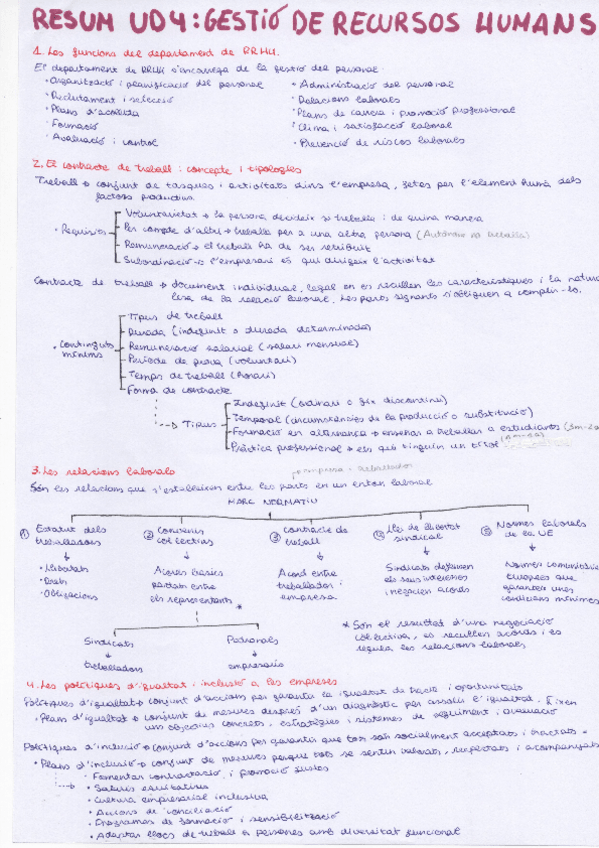 RESUM UD4: GESTIÓ DE RECURSOS HUMANS
1. Les funcions del departament de RRHH.
El departament de RRHH s'encarrega de la gestió del personal.
• Organització i planificació del personal
• Reclutament i selecció
• Plans d'acollida
• Formació
• Avaluació i control
• Administració del personal
• Relacions laborals
• Plans de carrera i promoció professional
• Clima i satisfacció laboral
• Prevenció de riscos laborals
2. El contracte de treball: concepte i tipologies
Treball → conjunt de tasques i activitats dins l'empresa, fetes per l'element humà dels
factors productius.
• Requisits
Voluntarietat → la persona decideix si treballa i de quina manera
Per compte d'altri → treballa per a una altra persona (Autònom no treballa)
Remuneració → el treball ha de ser retribuït
Subordinació → l'empresari és qui dirigeix l'activitat
Contracte de treball → document individual, legal on es recullen les característiques i la natura
lesa de la relació laboral. Les parts signants s'obliguen a complir-lo.
• Continguts mínims
Tipus de treball
Durada (indefinit o durada determinada)
Remuneració salarial (salari mensual)
Període de prova (voluntari)
Temps de treball (horari)
Forma de contracte
→ Tipus
Indefinit (ordinari o fix discontinu)
Temporal (circumstàncies de la producció o substitució)
Formació en alternança → ensenyar a treballar a estudiants (3m-2a
Pràctica professional → els que tinguin un títol
3. Les relacions laborals
→ empresa - treballador
Són les relacions que s'estableixen entre les parts en un entorn laboral
MARC NORMATIU
① Estatut dels treballadors
• Llibertats
• Drets
• Obligacions
② Convenis col·lectius
Acords bàsics
pactats entre
els representants
*
③ Contracte de treball
Acord entre
treballador i
empresa
④ Llei de llibertat sindical
Sindicats defensen
els seus interessos
i negocien acords
⑤ Normes laborals de la UE
Normes comunitàries
europees que
garanteixen unes
condicions mínimes
Sindicats
treballadors
Patronals
empresaris
* Són el resultat d'una negociació
col·lectiva, es recullen acords i es
regula les relacions laborals
4. Les polítiques d'igualtat i inclusió a les empreses
Polítiques d'igualtat → conjunt d'accions per garantir la igualtat de tracte i oportunitats
• Plans d'igualtat → conjunt de mesures després d'un diagnòstic per assolir l'igualtat. Fixen
uns objectius concrets, estratègies i sistemes de seguiment i avaluació
Polítiques d'inclusió → conjunt d'accions per garantir que tots són socialment acceptats i tractats
• Plans d'inclusió → conjunt de mesures perquè tots se sentin valorats, respectats i acompanyats
• Fomentar contractació, i promoció justos
• Salaris equitatius
• Cultura empresarial inclusiva
• Accions de conciliació
• Programes de formació i sensibilització
• Adaptar llocs de treball a persones amb diversitat funcional